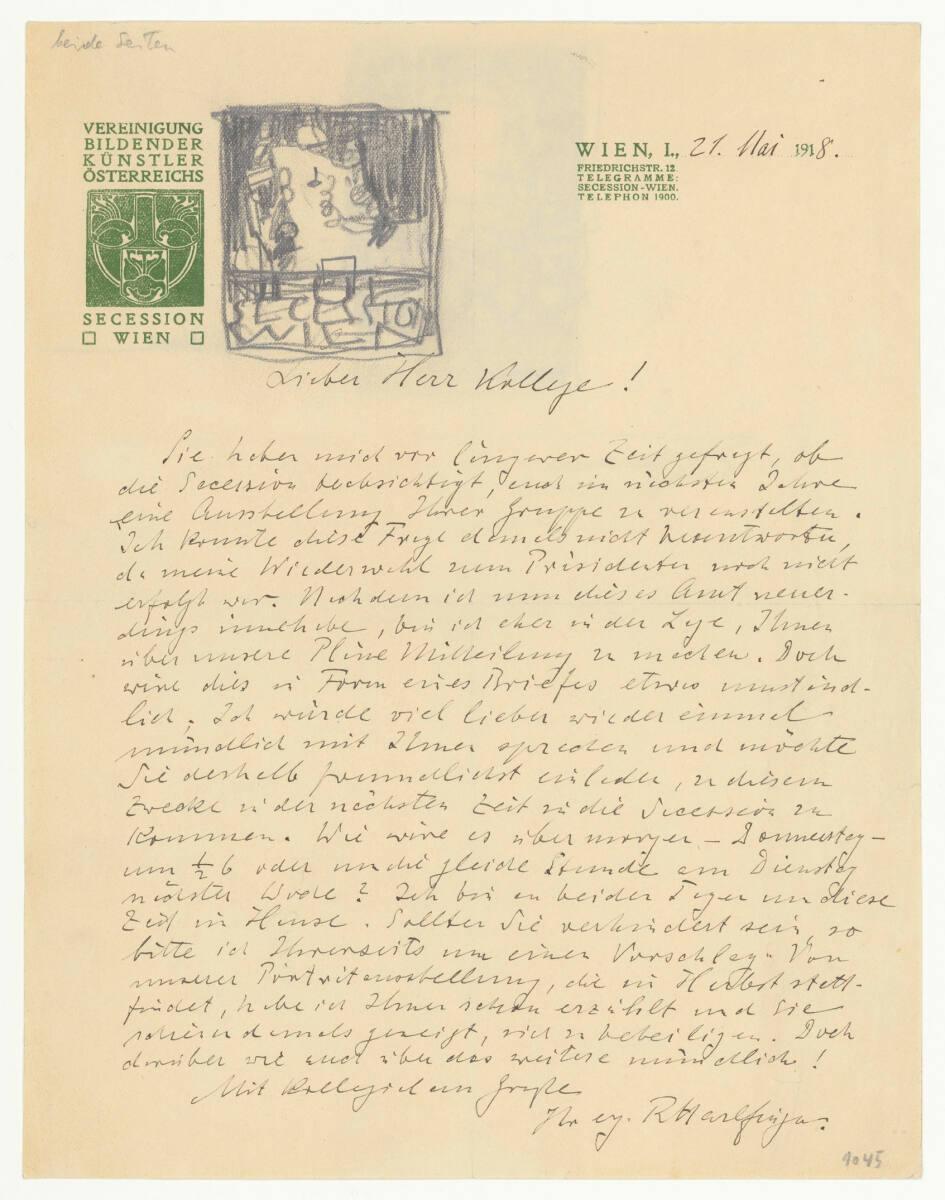 beide Seiten
VEREINIGUNG
BILDENDER
KÜNSTLER
ÖSTERREICHS
SECESSION
WIEN
SECESSION
WIEN
WIEN, I., 21. Mai 1918.
FRIEDRICHSTR. 12.
TELEGRAMME:
SECESSION-WIEN.
TELEPHON 1900.
Lieber Herr Kollege!
Sie haben mich vor längerer Zeit gefragt, ob
die Secession beabsichtigt, auch im nächsten Jahre
eine Ausstellung Ihrer Gruppe zu veranstalten.
Ich konnte diese Frage damals nicht beantworten,
da meine Wiederwahl zum Präsidenten noch nicht
erfolgt war. Nachdem ich nun dieses Amt neuer-
dings innehabe, bin ich eher in der Lage, Ihnen
über unsere Pläne Mitteilung zu machen. Doch
wäre dies in Form eines Briefes etwas umständ-
lich. Ich würde viel lieber wieder einmal
mündlich mit Ihnen sprechen und möchte
Sie deshalb freundlichst einladen, zu diesem
Zwecke in der nächsten Zeit in die Secession zu
kommen. Wie wäre es übermorgen – Donnerstag –
um ½ 6 oder um die gleiche Stunde am Dienstag
nächster Woche? Ich bin an beiden Tagen um diese
Zeit im Hause. Sollten Sie verhindert sein, so
bitte ich Ihrerseits um einen Vorschlag. Von
unserer Porträtausstellung, die im Herbst statt-
findet, habe ich Ihnen schon erzählt und Sie
schienen damals geneigt, sich zu beteiligen. Doch
darüber wie auch über das weitere mündlich!
Mit kollegialem Gruße
Ihr erg. RHarlfinger.
1045